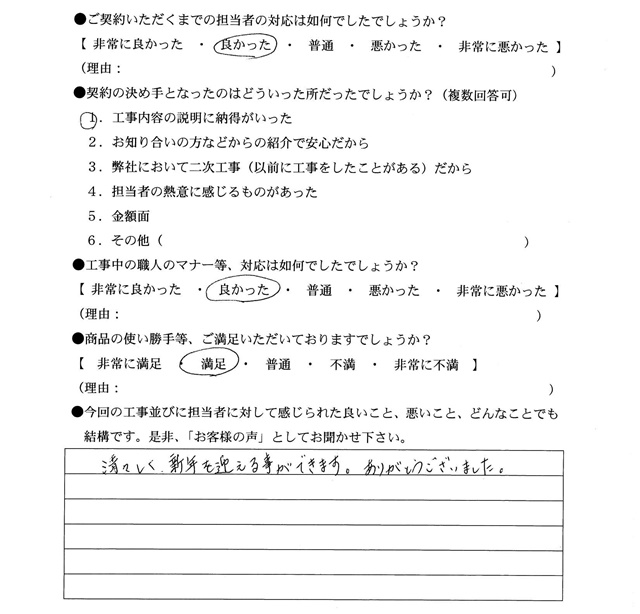 ●ご契約いただくまでの担当者の対応は如何でしたでしょうか？
【 非常に良かった ・ 良かった ・ 普通 ・ 悪かった ・ 非常に悪かった 】
（理由： ）
●契約の決め手となったのはどういった所だったでしょうか？（複数回答可）
1．工事内容の説明に納得がいった
2．お知り合いの方などからの紹介で安心だから
3．弊社において二次工事（以前に工事をしたことがある）だから
4．担当者の熱意に感じるものがあった
5．金額面
6．その他（ ）
●工事中の職人のマナー等、対応は如何でしたでしょうか？
【 非常に良かった ・ 良かった ・ 普通 ・ 悪かった ・ 非常に悪かった 】
（理由： ）
●商品の使い勝手等、ご満足いただいておりますでしょうか？
【 非常に満足 ・ 満足 ・ 普通 ・ 不満 ・ 非常に不満 】
（理由： ）
●今回の工事並びに担当者に対して感じられた良いこと、悪いこと、どんなことでも
結構です。是非、「お客様の声」としてお聞かせ下さい。
清々しく、新年を迎える事ができます。ありがとうございました。